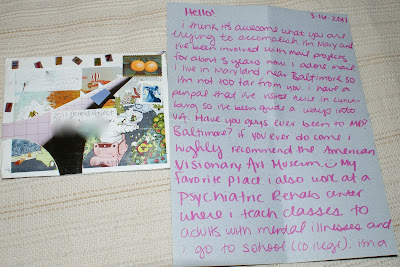 Hello!
3-16-2011
i think it's awesome what you are
trying to accomplish. i'm Mary and
i've been involved with mail projects
for about 3 years now. i adore mail.
i live in Maryland near Baltimore so
i'm not too far from you. i have a
penpal that i've visited twice in Lynch-
burg so i've been quite a ways into
VA. Have you guys ever been to MD?
Baltimore? if you ever do come i
highly recommend the American
Visionary Art Museum. My
favorite place. i also work at a
Psychiatric Rehab center
where i teach classes to
adults with mental illnesses and
i go to school (college). i'm a